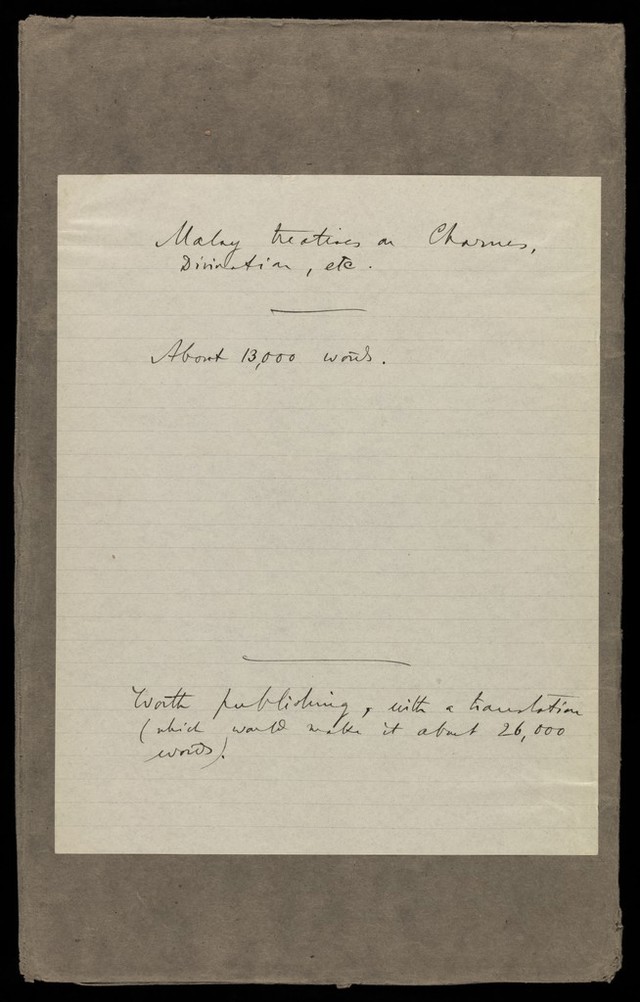 Malay treatises on Charmes,
Divination, etc.
About 13,000 words.
Worth publishing, with a translation
(which would make it about 26,000
words).